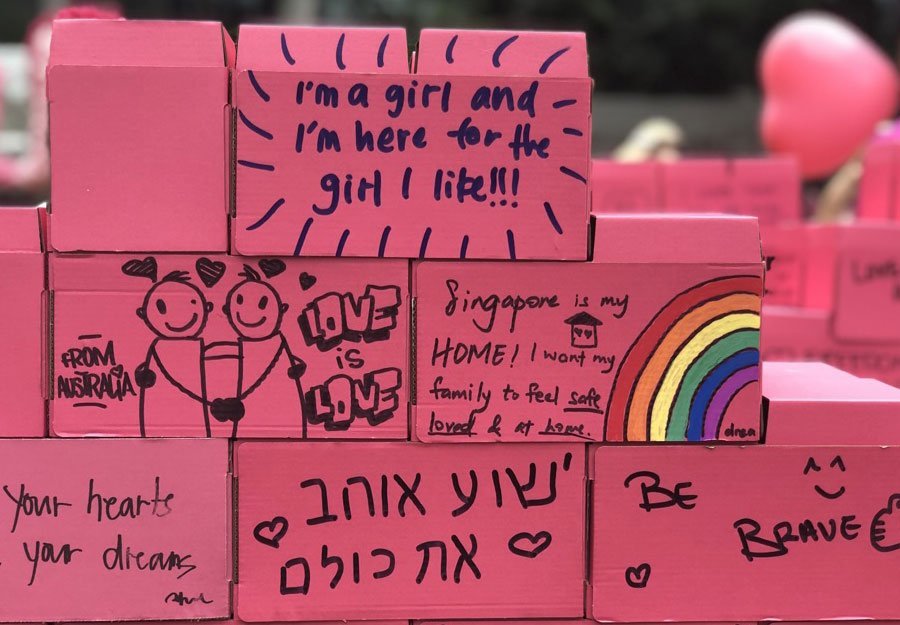 I'm a girl and
I'm here for the
girl I like!!!
FROM
AUSTRALIA
LOVE
is
LOVE
Singapore is my
HOME! I want my
family to feel safe
loved & at home.
your hearts
your dreams
ישוע אוהב
את כולם
BE
BRAVE